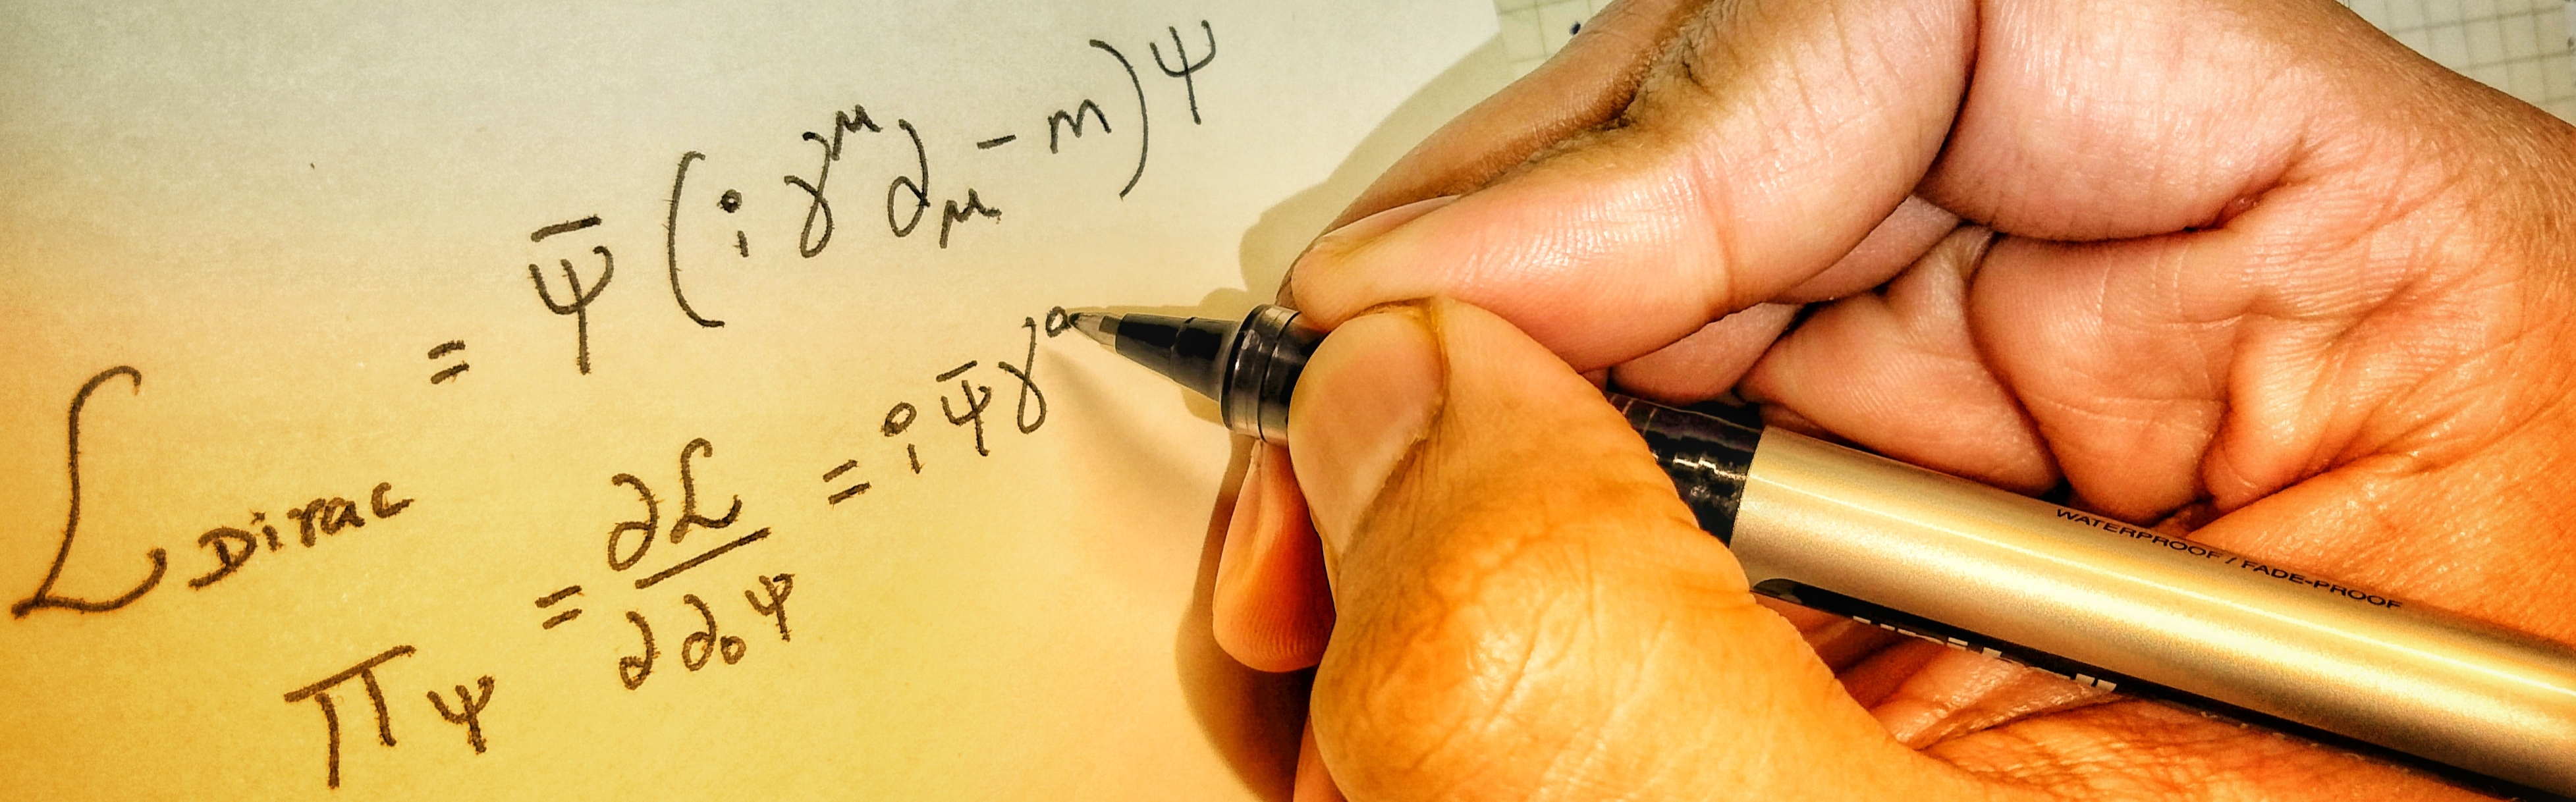 ℒ Dirac = ψ̄ (i γ^μ ∂_μ - m) ψ
Π_ψ = ∂ℒ / ∂ ∂₀ ψ = i ψ̄ γ⁰
WATERPROOF / FADE-PROOF